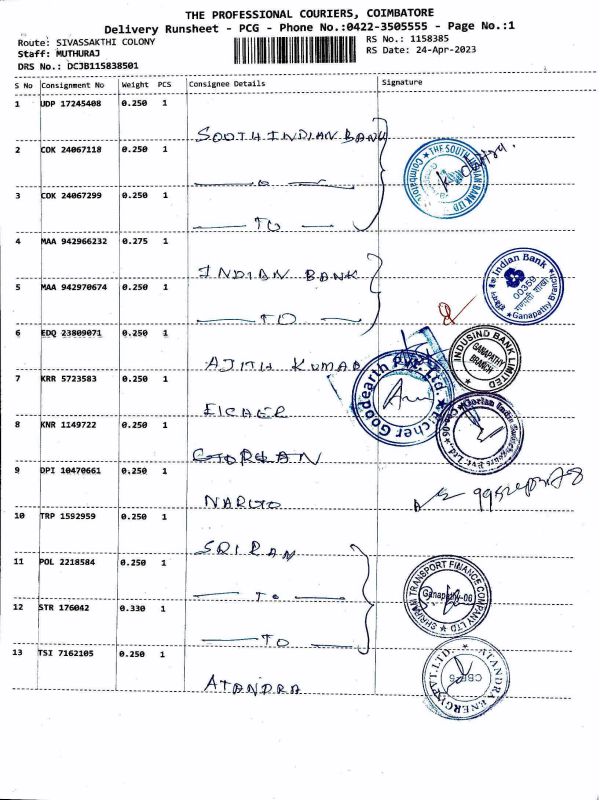 THE PROFESSIONAL COURIERS, COIMBATORE
Delivery Runsheet - PCG - Phone No.:0422-3505555 - Page No.:1
Route: SIVASSAKTHI COLONY
RS No.: 1158385
Staff: MUTHURAJ
RS Date: 24-Apr-2023
DRS No.: DCJB115838501
S No Consignment No Weight PCS Consignee Details Signature
1 UDP 17245408 0.250 1
SOUTH INDIAN BANK
2 COK 24067118 0.250 1
THE SOUTH INDIAN BANK LTD
Coimbatore
3 COK 24067299 0.250 1
TO
4 MAA 942966232 0.275 1
INDIAN BANK
Indian Bank
00359
Ganapathy Branch
5 MAA 942970674 0.250 1
TO
6 EDQ 23809071 0.250 1
AJITH KUMAR
INDUSIND BANK LIMITED
GANAPATHY BRANCH
7 KRR 5723583 0.250 1
EICHER
Eicher Goodearth Pvt. Ltd.
8 KNR 1149722 0.250 1
9 DPI 10470661 0.250 1
10 TRP 1592959 0.250 1
SRIRAM
11 POL 2218584 0.250 1
To
SHRIRAM TRANSPORT FINANCE COMPANY LTD
Ganapathy-06
12 STR 176042 0.330 1
TO
13 TSI 7162105 0.250 1
ATANDRA
ATANDRA ENERGY PVT. LTD.